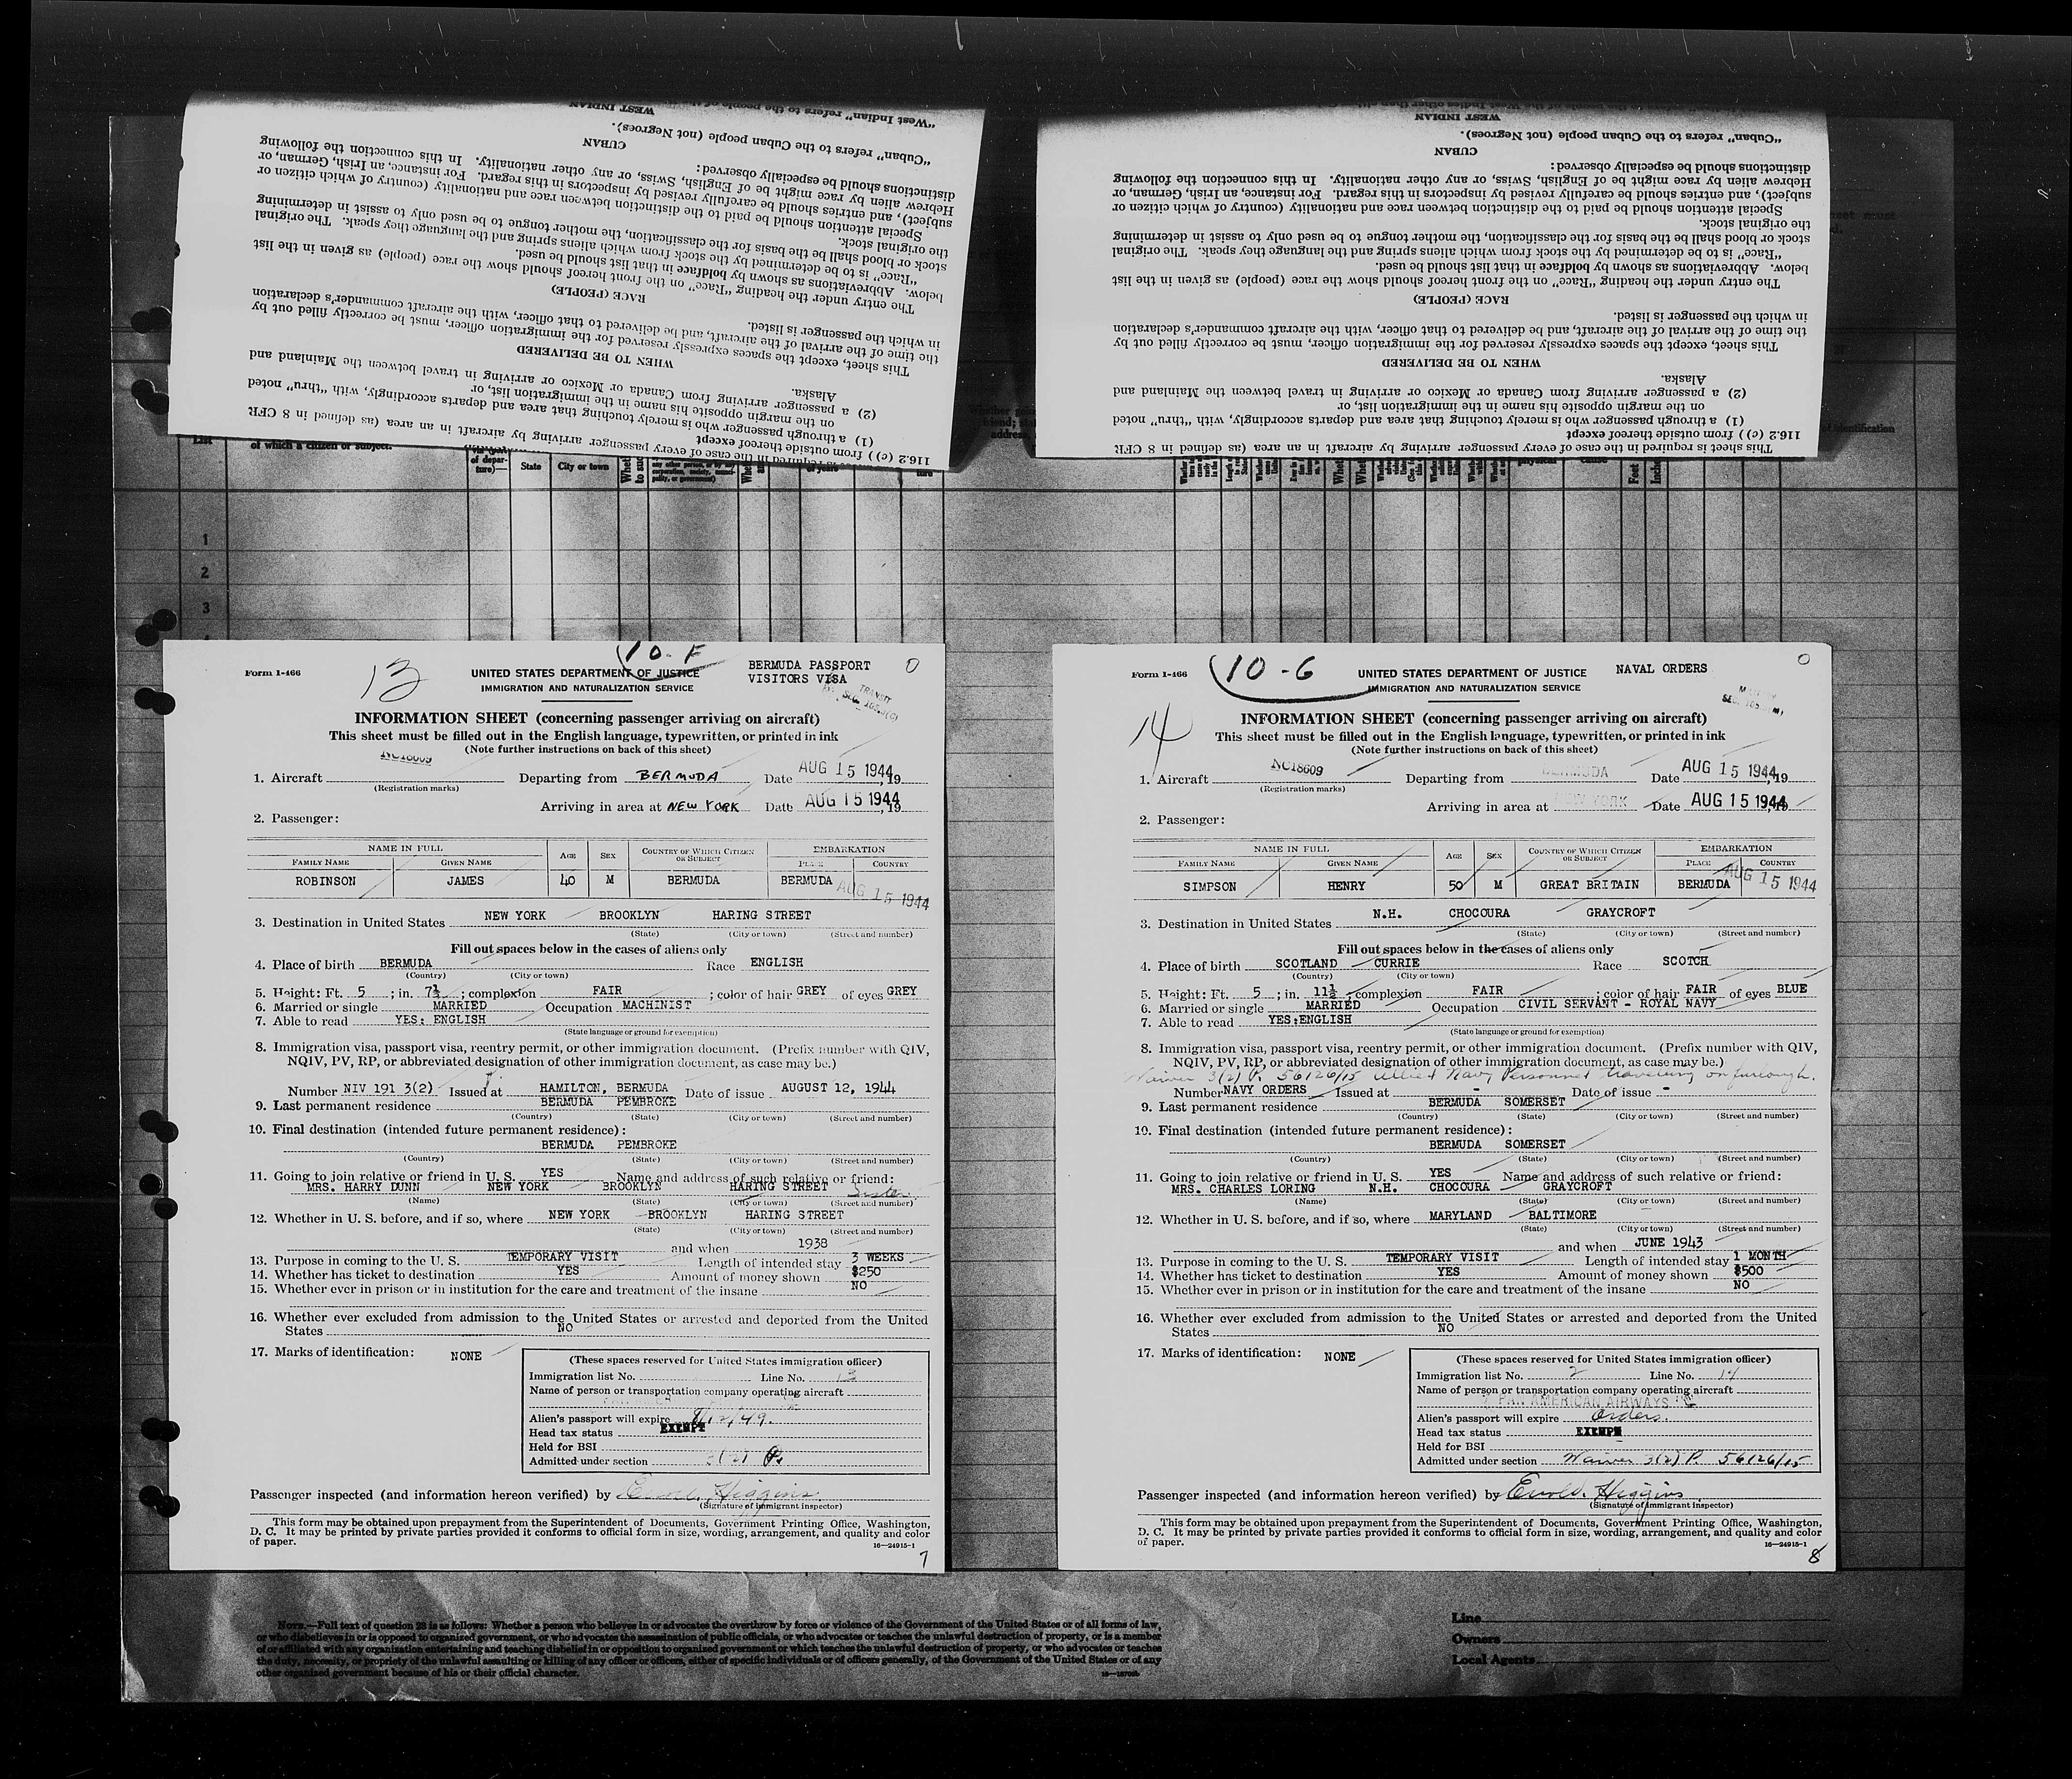 "West Indian" refers to the people of the
WEST INDIAN
"Cuban" refers to the Cuban people (not Negroes).
CUBAN
distinctions should be especially observed:
Hebrew alien by race might be of English, Swiss, or any other nationality. In this connection the following
subject), and entries should be carefully revised by inspectors in this regard. For instance, an Irish, German, or
Special attention should be paid to the distinction between race and nationality (country of which citizen or
the original stock.
stock or blood shall be the basis for the classification, the mother tongue to be used only to assist in determining
"Race" is to be determined by the stock from which aliens spring and the language they speak. The original
below. Abbreviations as shown by boldface in that list should be used.
The entry under the heading "Race" on the front hereof should show the race (people) as given in the list
RACE (PEOPLE)
in which the passenger is listed.
the time of the arrival of the aircraft, and be delivered to that officer, with the aircraft commander's declaration
This sheet, except the spaces expressly reserved for the immigration officer, must be correctly filled out by
WHEN TO BE DELIVERED
Alaska.
(2) a passenger arriving from Canada or Mexico or arriving in travel between the Mainland and
on the margin opposite his name in the immigration list, or
(1) a through passenger who is merely touching that area and departs accordingly, with "thru" noted
116.2 (c)) from outside thereof except
required in the case of every passenger arriving by aircraft in an area (as defined in 8 CFR
WEST INDIAN
"Cuban" refers to the Cuban people (not Negroes).
CUBAN
distinctions should be especially observed:
Hebrew alien by race might be of English, Swiss, or any other nationality. In this connection the following
subject), and entries should be carefully revised by inspectors in this regard. For instance, an Irish, German, or
Special attention should be paid to the distinction between race and nationality (country of which citizen or
the original stock.
stock or blood shall be the basis for the classification, the mother tongue to be used only to assist in determining
"Race" is to be determined by the stock from which aliens spring and the language they speak. The original
below. Abbreviations as shown by boldface in that list should be used.
The entry under the heading "Race" on the front hereof should show the race (people) as given in the list
RACE (PEOPLE)
in which the passenger is listed.
the time of the arrival of the aircraft, and be delivered to that officer, with the aircraft commander's declaration
This sheet, except the spaces expressly reserved for the immigration officer, must be correctly filled out by
WHEN TO BE DELIVERED
Alaska.
(2) a passenger arriving from Canada or Mexico or arriving in travel between the Mainland and
on the margin opposite his name in the immigration list, or
(1) a through passenger who is merely touching that area and departs accordingly, with "thru" noted
116.2 (c)) from outside thereof except
This sheet is required in the case of every passenger arriving by aircraft in an area (as defined in 8 CFR
List
of which a citizen or subject.
of depar-
ture)—
State
City or town
Feet
1
2
3
Form I-466
13
10-F
BERMUDA PASSPORT
VISITORS VISA
0
UNITED STATES DEPARTMENT OF JUSTICE
IMMIGRATION AND NATURALIZATION SERVICE
TRANSIT
INFORMATION SHEET (concerning passenger arriving on aircraft)
This sheet must be filled out in the English language, typewritten, or printed in ink
(Note further instructions on back of this sheet)
1. Aircraft NC18609 Departing from BERMUDA Date AUG 15 1944, 19
(Registration marks)
Arriving in area at NEW YORK Date AUG 15 1944, 19
2. Passenger:
NAME IN FULL AGE SEX COUNTRY OF WHICH CITIZEN OR SUBJECT EMBARKATION
FAMILY NAME GIVEN NAME PLACE COUNTRY
ROBINSON JAMES 40 M BERMUDA BERMUDA AUG 15 1944
3. Destination in United States NEW YORK BROOKLYN HARING STREET
(State) (City or town) (Street and number)
Fill out spaces below in the cases of aliens only
4. Place of birth BERMUDA Race ENGLISH
(Country) (City or town)
5. Height: Ft. 5 ; in. 7½ ; complexion FAIR ; color of hair GREY of eyes GREY
6. Married or single MARRIED Occupation MACHINIST
7. Able to read YES: ENGLISH
(State language or ground for exemption)
8. Immigration visa, passport visa, reentry permit, or other immigration document. (Prefix number with QIV,
NQIV, PV, RP, or abbreviated designation of other immigration document, as case may be.)
Number NIV 191 3(2) Issued at HAMILTON, BERMUDA Date of issue AUGUST 12, 1944
9. Last permanent residence BERMUDA PEMBROKE
(Country) (State) (City or town) (Street and number)
10. Final destination (intended future permanent residence):
BERMUDA PEMBROKE
(Country) (State) (City or town) (Street and number)
11. Going to join relative or friend in U. S. YES Name and address of such relative or friend:
MRS. HARRY DUNN NEW YORK BROOKLYN HARING STREET Sister
(Name) (State) (City or town) (Street and number)
12. Whether in U. S. before, and if so, where NEW YORK BROOKLYN HARING STREET
(State) (City or town) (Street and number)
and when 1938
13. Purpose in coming to the U. S. TEMPORARY VISIT Length of intended stay 3 WEEKS
14. Whether has ticket to destination YES Amount of money shown $250
15. Whether ever in prison or in institution for the care and treatment of the insane NO
16. Whether ever excluded from admission to the United States or arrested and deported from the United
States NO
17. Marks of identification: NONE
(These spaces reserved for United States immigration officer)
Immigration list No. Line No. 13
Name of person or transportation company operating aircraft
Alien's passport will expire 8/12/49.
Head tax status EXEMPT
Held for BSI
Admitted under section 3(2)
Passenger inspected (and information hereon verified) by Errol. Higgins
(Signature of immigrant inspector)
This form may be obtained upon prepayment from the Superintendent of Documents, Government Printing Office, Washington,
D. C. It may be printed by private parties provided it conforms to official form in size, wording, arrangement, and quality and color
of paper.
16—24915-1
7
Form I-466
10-G
14
NAVAL ORDERS
0
UNITED STATES DEPARTMENT OF JUSTICE
IMMIGRATION AND NATURALIZATION SERVICE
INFORMATION SHEET (concerning passenger arriving on aircraft)
This sheet must be filled out in the English language, typewritten, or printed in ink
(Note further instructions on back of this sheet)
1. Aircraft NC18609 Departing from BERMUDA Date AUG 15 1944, 19
(Registration marks)
Arriving in area at NEW YORK Date AUG 15 1944, 19
2. Passenger:
NAME IN FULL AGE SEX COUNTRY OF WHICH CITIZEN OR SUBJECT EMBARKATION
FAMILY NAME GIVEN NAME PLACE COUNTRY
SIMPSON HENRY 50 M GREAT BRITAIN BERMUDA AUG 15 1944
3. Destination in United States N.H. CHOCOURA GRAYCROFT
(State) (City or town) (Street and number)
Fill out spaces below in the cases of aliens only
4. Place of birth SCOTLAND CURRIE Race SCOTCH
(Country) (City or town)
5. Height: Ft. 5 ; in. 11½ ; complexion FAIR ; color of hair FAIR of eyes BLUE
6. Married or single MARRIED Occupation CIVIL SERVANT - ROYAL NAVY
7. Able to read YES:ENGLISH
(State language or ground for exemption)
8. Immigration visa, passport visa, reentry permit, or other immigration document. (Prefix number with QIV,
NQIV, PV, RP, or abbreviated designation of other immigration document, as case may be.)
Waiver 3(2) P. 56126/15 Allied Navy Personnel traveling on furlough.
Number NAVY ORDERS Issued at - Date of issue -
9. Last permanent residence BERMUDA SOMERSET
(Country) (State) (City or town) (Street and number)
10. Final destination (intended future permanent residence):
BERMUDA SOMERSET
(Country) (State) (City or town) (Street and number)
11. Going to join relative or friend in U. S. YES Name and address of such relative or friend:
MRS. CHARLES LORING N.H. CHOCOURA GRAYCROFT
(Name) (State) (City or town) (Street and number)
12. Whether in U. S. before, and if so, where MARYLAND BALTIMORE
(State) (City or town) (Street and number)
and when JUNE 1943
13. Purpose in coming to the U. S. TEMPORARY VISIT Length of intended stay 1 MONTH
14. Whether has ticket to destination YES Amount of money shown $500
15. Whether ever in prison or in institution for the care and treatment of the insane NO
16. Whether ever excluded from admission to the United States or arrested and deported from the United
States NO
17. Marks of identification: NONE
(These spaces reserved for United States immigration officer)
Immigration list No. 2 Line No. 14
Name of person or transportation company operating aircraft
PAN AMERICAN AIRWAYS
Alien's passport will expire Orders.
Head tax status EXEMPT
Held for BSI
Admitted under section Waiver 3(2) P. 56126/15
Passenger inspected (and information hereon verified) by Errol. Higgins
(Signature of immigrant inspector)
This form may be obtained upon prepayment from the Superintendent of Documents, Government Printing Office, Washington,
D. C. It may be printed by private parties provided it conforms to official form in size, wording, arrangement, and quality and color
of paper.
16—24915-1
8
NOTE.—Full text of question 23 is as follows: Whether a person who believes in or advocates the overthrow by force or violence of the Government of the United States or of all forms of law,
or who disbelieves in or is opposed to organized government, or who advocates the assassination of public officials, or who advocates or teaches the unlawful destruction of property, or is a member
of or affiliated with any organization entertaining and teaching disbelief in or opposition to organized government or which teaches the unlawful destruction of property, or who advocates or teaches
the duty, necessity, or propriety of the unlawful assaulting or killing of any officer or officers, either of specific individuals or of officers generally, of the Government of the United States or of any
other organized government because of his or their official character.
Line
Owners
Local Agents